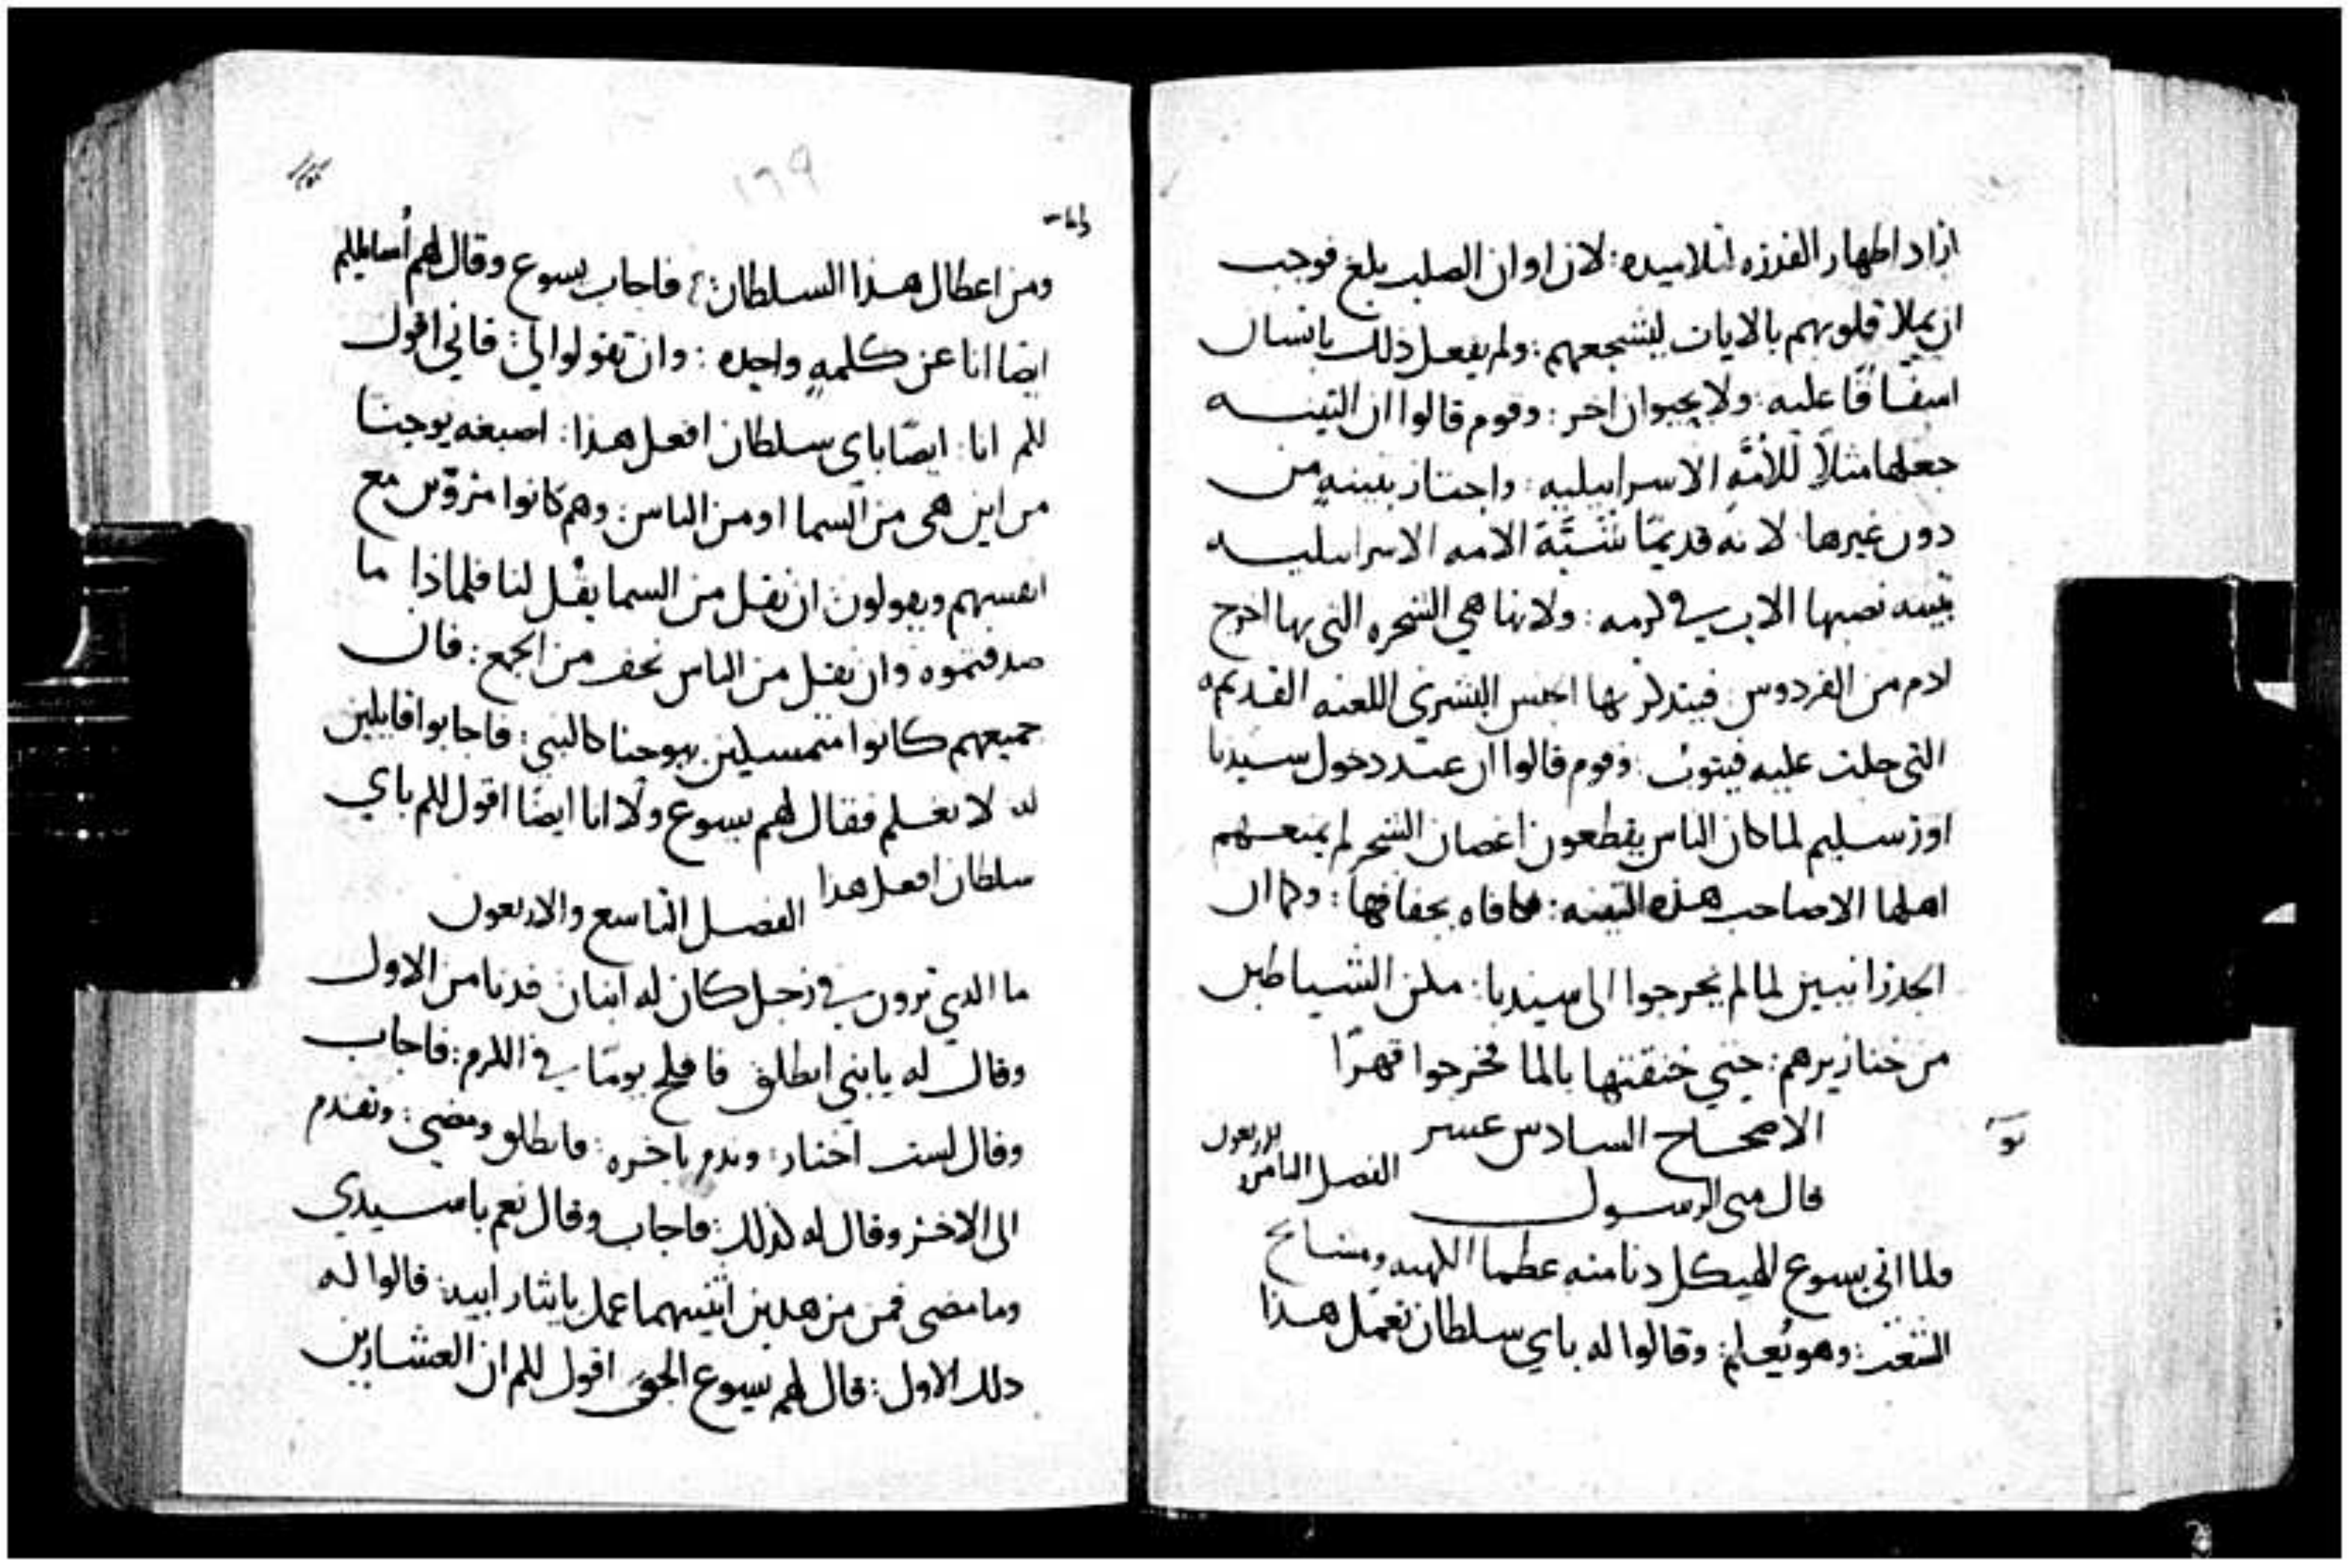 اراد اظهار القدره لتلاميده: لان اوان الصلب بلغ فوجب
ان يملا قلوبهم بالايات ليشجعهم: ولم يفعل ذلك بانسان
اسفاقًا عليه: ولا بحيوان اخر: وقوم قالوا ان التينه
جعلها مثلاً للأمّهِ الاسراييليه: واختار بتينهٍ من
دون غيرها لانه قديمًا شبَّهَ الامه الاسراييليه
بتينه نصبها الاب في كرمه: ولانها هي الشجره التي بها اخرج
ادم من الفردوس فيتدكر بها الجنس البشري اللعنه القديمه
التي حلت عليه فيتوب: وقوم قالوا ان عند دخول سيدنا
اورسليم لما كان الناس يقطعون اغصان الشجر لم يمنعهم
اهلها الا صاحب هذه التينه: فكافاه بجفافها: وكما ان
الجدرانيين لما لم يخرجوا الى سيدنا: مكن الشياطين
من خنازيرهم: حتي خنقتها بالما فخرجوا قهرًا
الاصحاح السادس عشر
قال متى الرسول
الفصل الثامن والاربعون
ولما اتى يسوع الهيكل دنا منه عظما الكهنه ومشايخ
الشعب: وهو يُعلم: وقالوا له باي سلطان تعمل هذا
١٦٩
ومن اعطاك هذا السلطان: فاجاب يسوع وقال لهم أسايلكم
ايضا انا عن كلمهٍ واحده: وان تقولوا لي: فاني اقول
لكم انا ايضًا باي سلطان افعل هذا: اصبغه يوحنا
من اين هي من السما او من الناس: وهم كانوا مروّين مع
انفسهم ويقولون: ان نقل من السما يقُل لنا فلماذا ما
صدقتموه وان نقل من الناس نخف من الجمع: فان
جميعهم كانوا متمسكين بيوحنا كالنبي: فاجابوا قايلين
له لا نعلم فقال لهم يسوع ولا انا ايضًا اقول لكم باي
سلطان افعل هذا
الفصل التاسع والاربعون
ما الدي ترون في رجل كان له ابنان فدنا من الاول
وقال له يابني انطلق فافلح يومًا في الكرم: فاجاب
وقال لست اختار: وندم باخره: فانطلق ومضى: وتقدم
الى الاخر وقال له كذلك: فاجاب وقال نعم ياسيدي
وما مضى فمن من هدين اثنيهما عمل بايثار ابيه: قالوا له
دلك الاول: قال لهم يسوع الحق اقول لكم ان العشارين